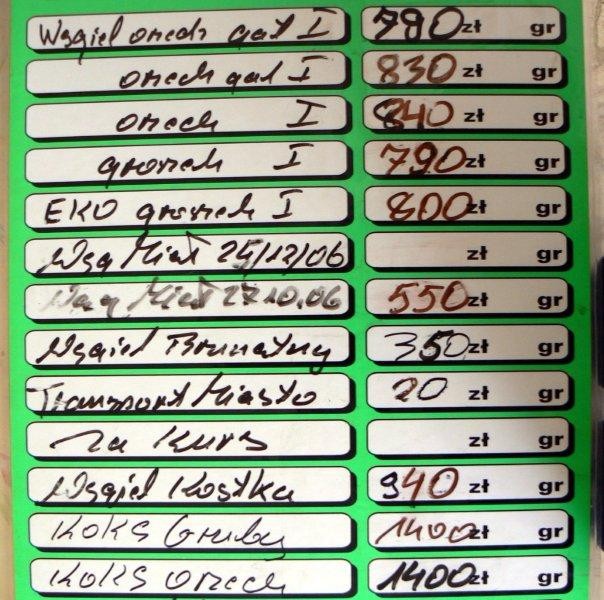 Węgiel orzech gat I 790 zł gr
orzech gat I 830 zł gr
orzech I 840 zł gr
groszek I 790 zł gr
EKO groszek I 800 zł gr
Węg Miał 25/12/06 zł gr
Węg Miał 27.10.06 550 zł gr
Węgiel Brunatny 350 zł gr
Transport Miasto 20 zł gr
za Kurs zł gr
Węgiel Kostka 940 zł gr
KOKS Gruby 1400 zł gr
KOKS orzech 1400 zł gr